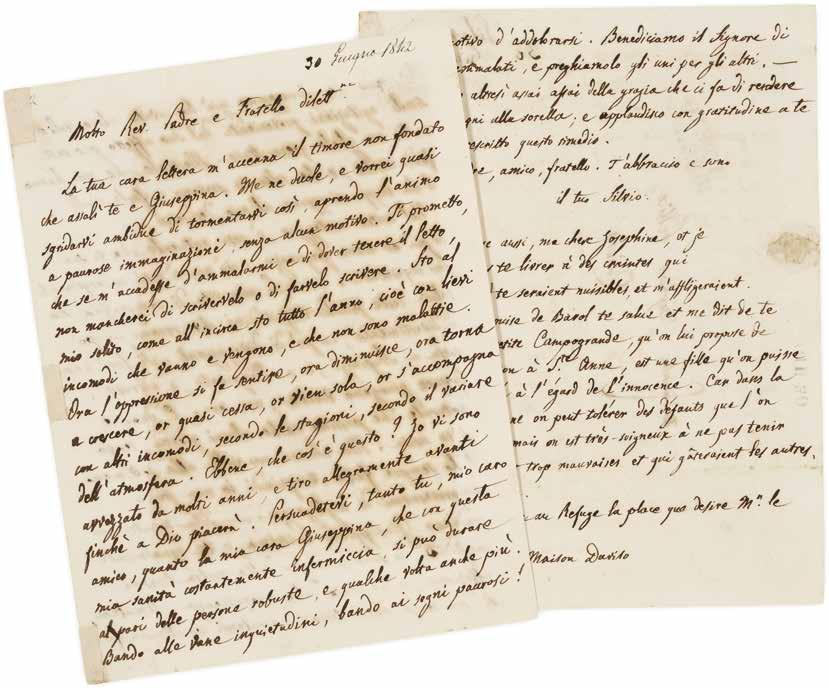 30 Giugno 1842
Molto Rev. Padre e Fratello dilett.mo
La tua cara lettera m'accenna il timore non fondato
che assalì te e Giuseppina. Me ne duole, e vorrei quasi
sgridarvi ambidue di tormentarvi così, aprendo l'animo
a paurose immaginazioni senza alcun motivo. Ti prometto,
che se m'accadesse d'ammalarmi e di dover tenere il letto,
non mancherei di scrivervelo o di farvelo scrivere. Sto al
mio solito, come all'incirca sto tutto l'anno, cioè con lievi
incomodi che vanno e vengono, e che non sono malattie.
Ora l'oppressione si fa sentire, ora diminuisce, ora torna
a crescere, or quasi cessa, or vien sola, or s'accompagna
con altri incomodi, secondo le stagioni, secondo il variare
dell'atmosfera. Ebbene, che cos'è questo? Io vi sono
avvezzato da molti anni, e tiro allegramente avanti
finchè a Dio piacerà. Persuadetevi, tanto tu, mio caro
amico, quanto la mia cara Giuseppina, che con questa
mia sanità costantemente infermiccia, si può durare
al pari delle persone robuste, e qualche volta anche più.
Bando alle vane inquietudini, bando ai sogni paurosi!
d'addolorarsi. Benediciamo il Signore di
e preghiamolo gli uni per gli altri. —
altresì assai assai della grazia che ci fa di rendere
alla sorella, e applaudisco con gratitudine a te
questo rimedio.
amico, fratello. T'abbraccio e sono
il tuo Silvio.
aussi, ma chere Josephine, et je
te livrer à des craintes qui
te seraient nuisibles et m'affligeraient.
de Barol te salue et me dit de te
Campogrande, qu'on lui propose de
à S.te Anne, est une fille qu'on puisse
à l'égard de l'innocence. Car dans la
on peut tolérer des défauts que l'on
mais on est très-soigneux à ne pas tenir
trop mauvaises et qui gâteraient les autres.
au Refuge la place que desire M.r le
Maison Daviso